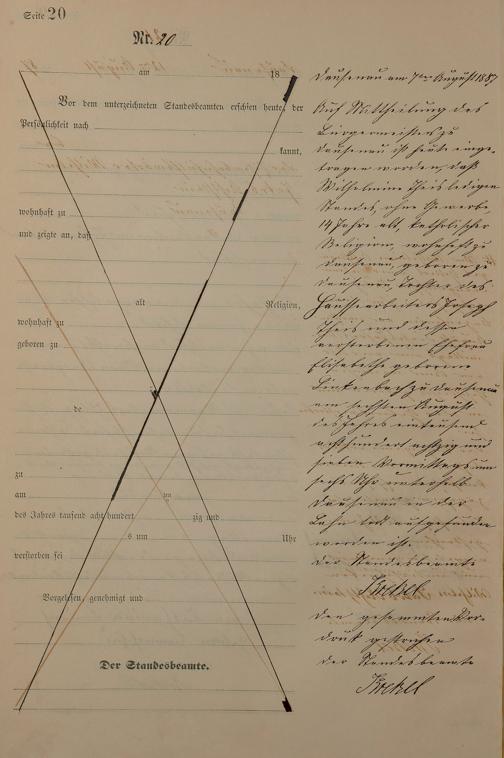 Seite 20
Nr. 20
am 18
Vor dem unterzeichneten Standesbeamten erschien heute, der
Persönlichkeit nach
kannt,
wohnhaft zu
und zeigte an, daß
alt Religion,
wohnhaft zu
geboren zu
de
zu
am ten
des Jahres tausend acht hundert zig und
s um Uhr
verstorben sei
Vorgelesen, genehmigt und
Der Standesbeamte.
Dausenau am 7ten August 1887
Auf Mittheilung des
Bürgermeisters zu
Dausenau ist heute einge-
tragen worden, daß
Wilhelmine Theis ledigen
Standes, ohne Gewerbe,
14 Jahre alt, katholischer
Religion, wohnhaft zu
Dausenau, geboren zu
Dausenau, Tochter des
Joseph
Theis und dessen
verstorbenen Ehefrau
Elisabethe geborene
Linkenbach zu Dausenau
am sechsten August
des Jahres eintausend
achthundert achtzig und
sieben Vormittags um
sechs Uhr unterhalb
Dausenau in der
Lahn todt aufgefunden
worden ist.
Der Standesbeamte
Den gesammten Vor-
druck gestrichen
Der Standesbeamte